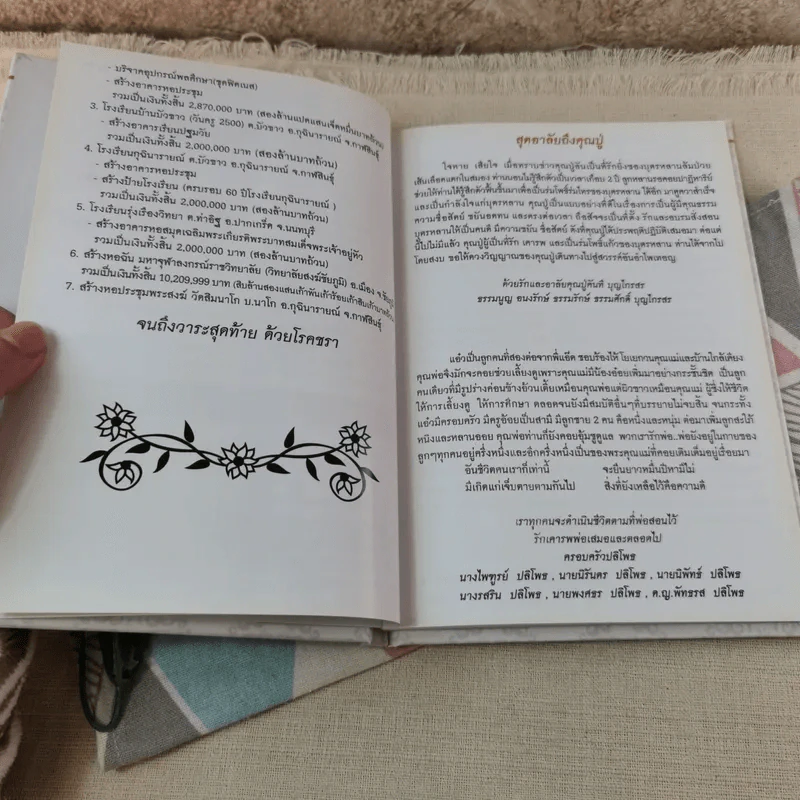 - บริจาคอุปกรณ์พลศึกษา(ชุดฟิตเนส)
- สร้างอาคารหอประชุม
รวมเป็นเงินทั้งสิ้น 2,870,000 บาท (สองล้านแปดแสนเจ็ดหมื่นบาทถ้วน)
3. โรงเรียนบ้านบัวขาว (วันครู 2500) ต.บัวขาว อ.กุฉินารายณ์ จ.กาฬสินธุ์
- สร้างอาคารเรียนปฐมวัย
รวมเป็นเงินทั้งสิ้น 2,000,000 บาท (สองล้านบาทถ้วน)
4. โรงเรียนกุฉินารายณ์ ต.บัวขาว อ.กุฉินารายณ์ จ.กาฬสินธุ์
- สร้างอาคารหอประชุม
- สร้างป้ายโรงเรียน (ครบรอบ 60 ปีโรงเรียนกุฉินารายณ์ )
รวมเป็นเงินทั้งสิ้น 2,000,000 บาท (สองล้านบาทถ้วน)
5. โรงเรียนรุ่งเรืองวิทยา ต.ท่าอิฐ อ.ปากเกร็ด จ.นนทบุรี
- สร้างอาคารหอสมุดเฉลิมพระเกียรติพระบาทสมเด็จพระเจ้าอยู่หัว
รวมเป็นเงินทั้งสิ้น 2,000,000 บาท (สองล้านบาทถ้วน)
6. สร้างหอฉัน มหาจุฬาลงกรณ์ราชวิทยาลัย (วิทยาลัยสงฆ์ชัยภูมิ) อ.เมือง จ.ชัยภูมิ
รวมเป็นเงินทั้งสิ้น 10,209,999 บาท (สิบล้านสองแสนเก้าพันเก้าร้อยเก้าสิบเก้าบาทถ้วน)
7. สร้างหอประชุมพระสงฆ์ วัดสิมนาโก บ.นาโก อ.กุฉินารายณ์ จ.กาฬสินธุ์
จนถึงวาระสุดท้าย ด้วยโรคชรา
สุดอาลัยถึงคุณปู่
ใจหาย เสียใจ เมื่อทราบข่าวคุณปู่อันเป็นที่รักยิ่งของบุตรหลานล้มป่วย
เส้นเลือดแตกในสมอง ท่านนอนไม่รู้สึกตัวเป็นเวลาเกือบ 2 ปี ลูกหลานรอคอยปาฏิหาริย์
ช่วยให้ท่านได้รู้สึกตัวฟื้นขึ้นมาเพื่อเป็นร่มโพธิ์ร่มไทรของบุตรหลาน ได้อีก มาดูความสำเร็จ
และเป็นกำลังใจแก่บุตรหลาน คุณปู่เป็นแบบอย่างที่ดีในเรื่องการเป็นผู้มีคุณธรรม
ความซื่อสัตย์ ขยันอดทน และตรงต่อเวลา ถือสัจจะเป็นที่ตั้ง รักและอบรมสั่งสอน
บุตรหลานให้เป็นคนดี มีความขยัน ซื่อสัตย์ ดังที่คุณปู่ได้ประพฤติปฏิบัติเสมอมา ต่อแต่
นี้ไปไม่มีแล้ว คุณปู่ผู้เป็นที่รัก เคารพ และเป็นร่มโพธิ์แก้วของบุตรหลาน ท่านได้จากไป
โดยสงบ ขอให้ดวงวิญญาณของคุณปู่เดินทางไปสู่สวรรค์อันอำไพเทอญ
ด้วยรักและอาลัยคุณปู่คันที บุญไกรสร
ธรรมนูญ อนงรักษ์ ธรรมรักษ์ ธรรมศักดิ์ บุญไกรสร
แอ๋วเป็นลูกคนที่สองต่อจากพี่แอ๊ด ชอบร้องไห้ โยเยกวนคุณแม่และบ้านใกล้เคียง
คุณพ่อจึงมักจะคอยช่วยเลี้ยงดูเพราะคุณแม่มีน้องอ้อยเพิ่มมาอย่างกระชั้นชิด เป็นลูก
คนเดียวที่มีรูปร่างค่อนข้างอ้วนเตี้ยเหมือนคุณพ่อแต่ผิวขาวเหมือนคุณแม่ ผู้ซึ่งให้ชีวิต
ให้การเลี้ยงดู ให้การศึกษา ตลอดจนยังมีสมบัติอื่นๆที่บรรยายไม่จบสิ้น จนกระทั่ง
แอ๋วมีครอบครัว มีครูอ้อยเป็นสามี มีลูกชาย 2 คน คือหนึ่งและหนุ่ม ต่อมาเพิ่มลูกสะใภ้
หนึ่งและหลานออย คุณพ่อท่านก็ยังคอยอุ้มชูดูแล พวกเรารักพ่อ..พ่อยังอยู่ในกายของ
ลูกๆทุกคนอยู่ครึ่งหนึ่งและอีกครึ่งหนึ่งเป็นของพระคุณแม่ที่คอยเติมเต็มอยู่เรื่อยมา
อันชีวิตคนเราก็เท่านี้ จะยืนยาวหมื่นปีหามีไม่
มีเกิดแก่เจ็บตายตามกันไป สิ่งที่ยังเหลือไว้คือความดี
เราทุกคนจะดำเนินชีวิตตามที่พ่อสอนไว้
รักเคารพพ่อเสมอและตลอดไป
ครอบครัวปลิโพธ
นางไพฑูรย์ ปลิโพธ , นายนิรันดร ปลิโพธ , นายนิพัทธ์ ปลิโพธ
นางรสริน ปลิโพธ , นายพงศธร ปลิโพธ , ด.ญ.พัทธรส ปลิโพธ